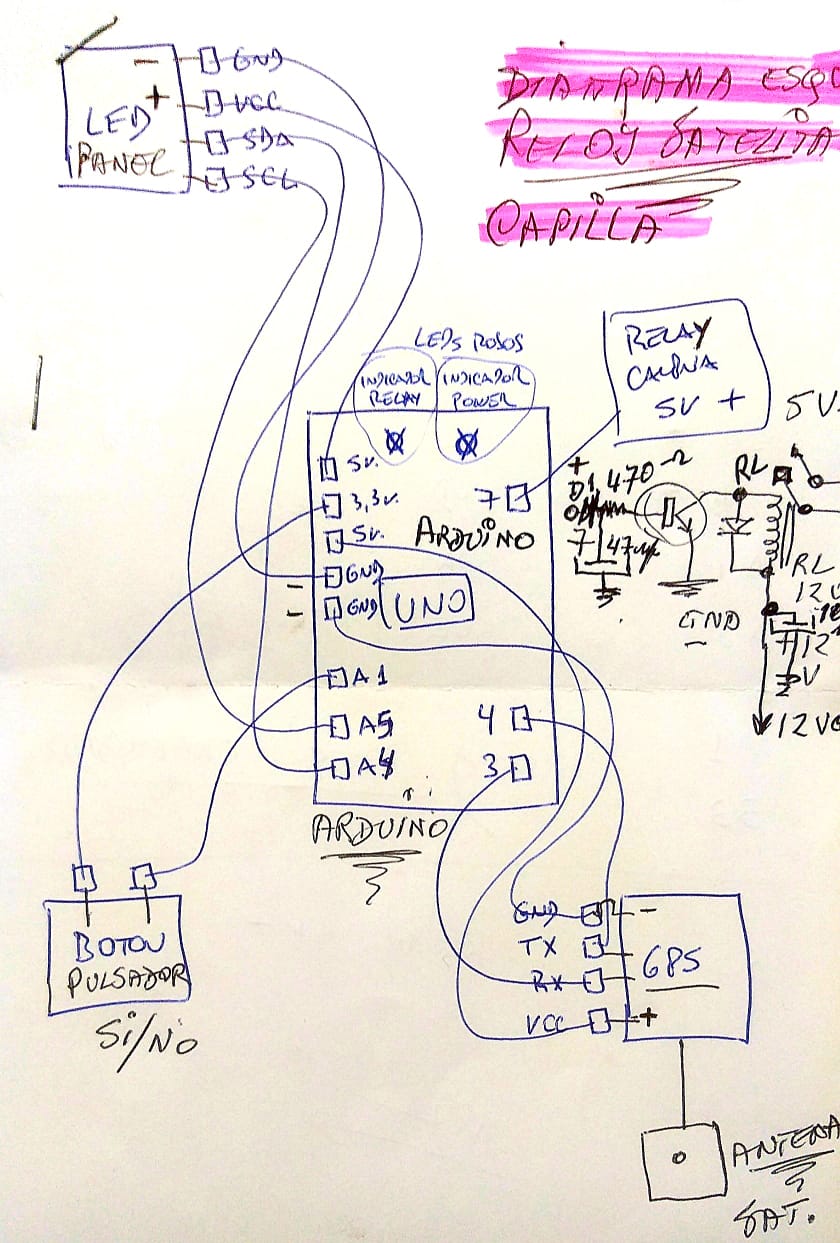 DIAGRAMA ESQU
RELOJ SATELITA
CAPILLA
- GND
+ VCC
LED
PANEL
SDA
SCL
LEDs ROJOS
INDICADOR
RELAY
INDICADOR
POWER
RELAY
5V +
5V.
3,3v.
5v.
7
ARDUiNO
GND
GND
UNO
A1
A5
A4
4
3
ARDUINO
+
D1 470 Ω
7
47
GND
-
RL
5V.
RL
12V
12
V
12VC
BOTON
PULSADOR
Si/NO
GND -
TX
RX
VCC +
GPS
ANTENA
SAT.